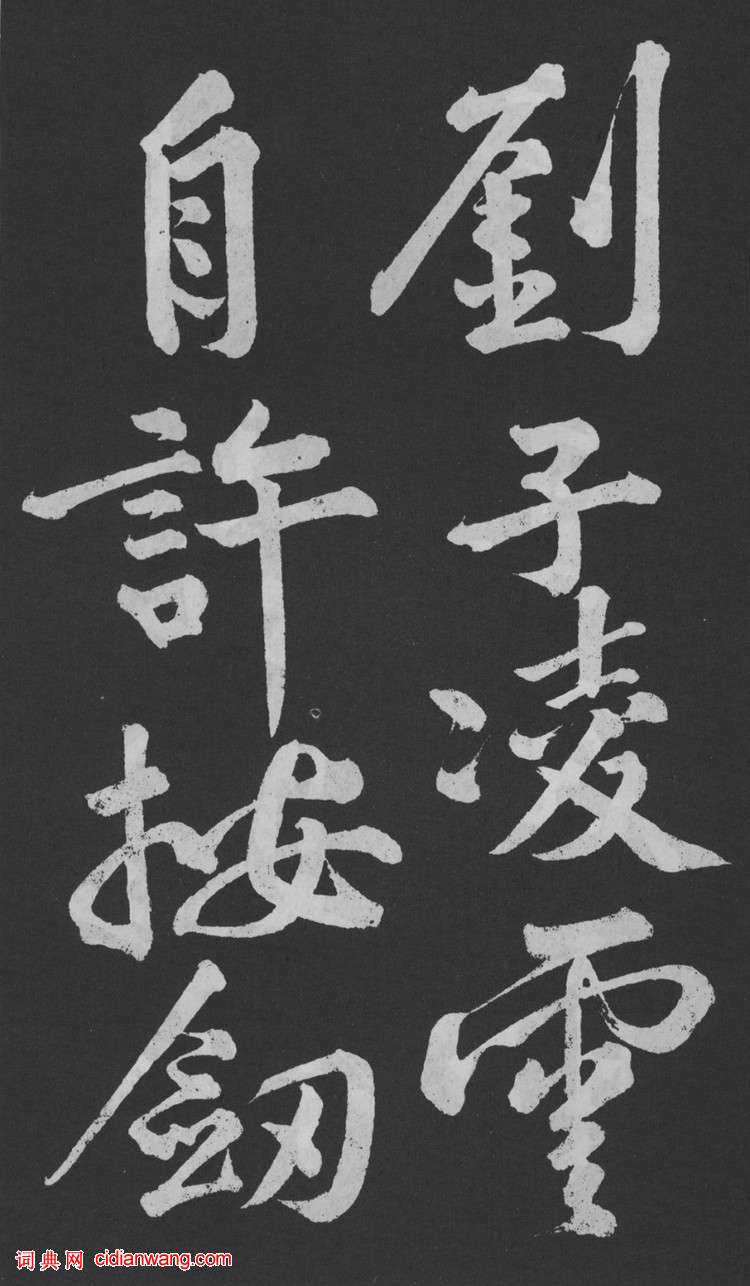 劉子凌雲
自許按劒
词典网 cidianwang.com